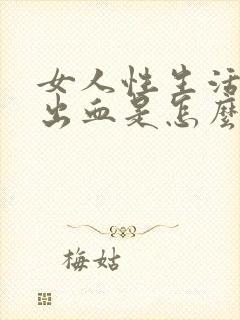 女人性生活
出血是怎麽
梅姑